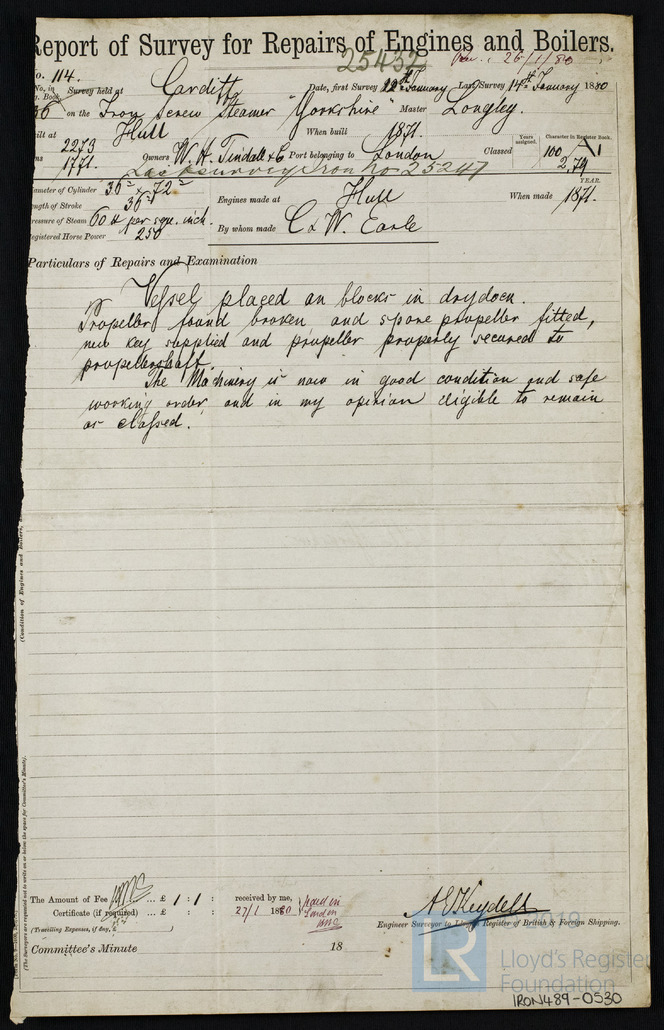 Report of Survey for Repairs of Engines and Boilers.
25437 26/1/80
No. 114.
No. in Reg. Book. Survey held at Cardiff Date, first Survey 12th January Last Survey 14th January 1880
36 on the Iron Screw Steamer "Yorkshire" Master Longley.
Built at Hull When built 1871.
Tons 2273 1771. Owners W. H. Tindall & C Port belonging to London Classed Years assigned. 100 Character in Register Book. A1 2,79
Last survey Iron No 25247
YEAR.
Diameter of Cylinder 36" × 72" Engines made at Hull When made 1871.
Length of Stroke 36"
Pressure of Steam 60 lb per squ. inch. By whom made C & W. Earle
Registered Horse Power 250
Particulars of Repairs and Examination
Vessel placed on blocks in drydock.
Propeller found broken and spare propeller fitted,
new key supplied and propeller properly secured to
propellershaft.
The Machinery is now in good condition and safe
working order, and in my opinion eligible to remain
as classed.
(Condition of Engines and Boilers,
(The Surveyors are requested not to write on or below the space for Committee's Minute.
The Amount of Fee ... £ 1 : 1 : received by me, paid in London
Certificate (if required) ... £ : : 27/1 1880
(Travelling Expenses, if any, £ )
A E Keydell
Engineer Surveyor to Lloyd's Register of British & Foreign Shipping.
Committee's Minute 18
LR
2019
Lloyd's Register
Foundation
IRON489-0530